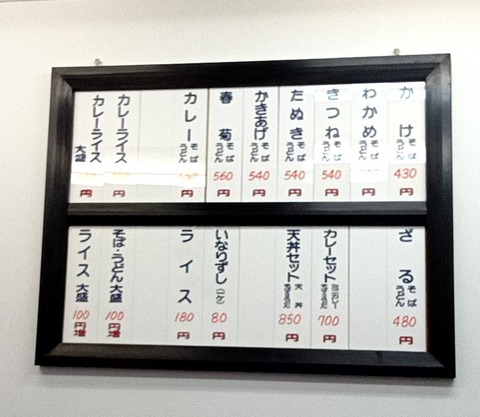 かけ そば うどん 430円
わかめ そば うどん 円
きつね そば うどん 540円
たぬき そば うどん 540円
かきあげ そば うどん 540円
春菊 そば うどん 560円
カレー そば うどん 円
カレーライス 円
カレーライス 大盛 円
ざる そば うどん 480円
カレーセット 700円
天丼セット 天丼 850円
いなりずし(二ケ) 80円
ライス 180円
そば・うどん大盛 100円増
ライス 大盛 100円増